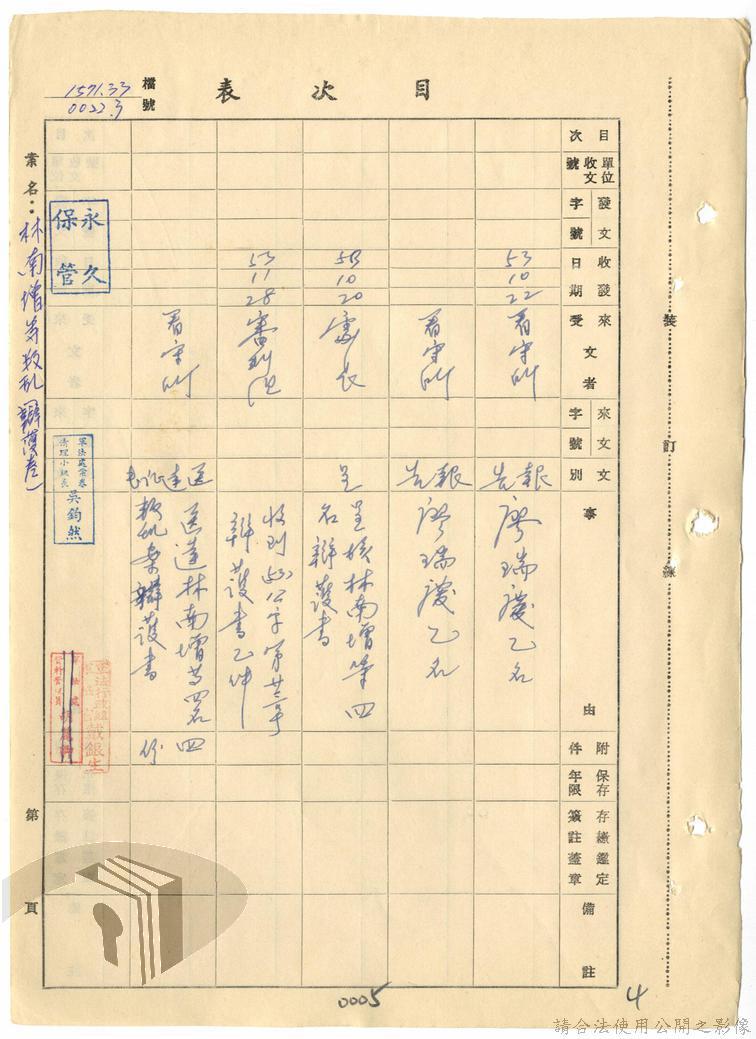 目次表
檔號
1571.33
0022.3
目次
單位收文號
發文字號
收發日期
來文者
受
來文字號
文別
事由
附件
保存年限
存繳鑑定
簽註蓋章
備註
53
10
22
看守所
報告
廖瑞慶乙名
看守所
報告
廖瑞慶乙名
53
10
20
處長
呈
呈核林南增等四
名辯護書
53
11
28
審判
收到
字第
號
辯護書乙件
看守所
送達
送達林南增等四名
叛亂案辯護書
四
份
案名：林南增等叛亂（辯護卷）
永久保管
軍法處案卷
清理小組組長
吳鈞然
軍法行政組
戴銀生
第
頁
裝訂線
0005
4
請合法使用公開之影像